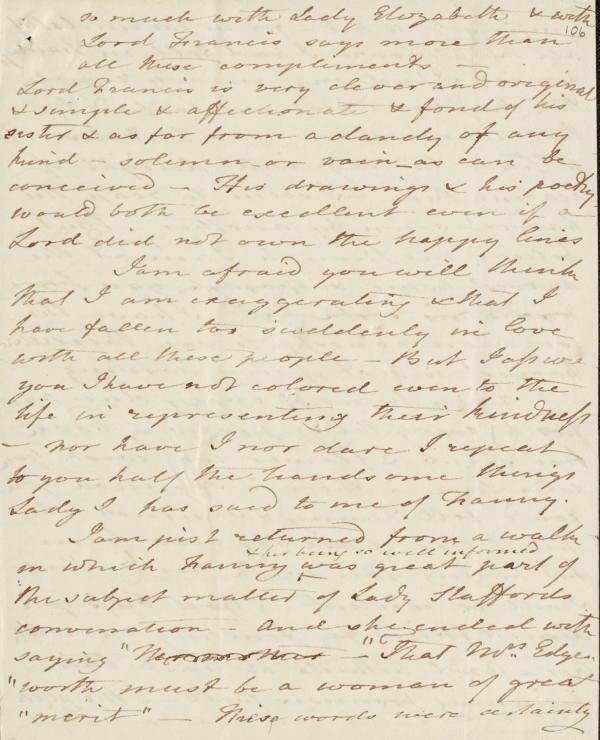 so much with Lady Elizabeth & with
106
Lord Francis says more than
all these compliments —
Lord Francis is very clever and original
& simple & affectionate & fond of his
sister & as far from a dandy of any
kind – solemn or vain – as can be
conceived – His drawings & his poetry
would both be excellent even if a
Lord did not own the happy lines
I am afraid you will think
that I am exaggerating & that I
have fallen too suddenly in love
with all these people – But I assure
you I have not colored even to the
life in representing their kindness
– nor have I nor dare I repeat
to you half the handsome things
Lady S has said to me of Fanny.
I am just returned from a walk
& her being so well informed
in which Fanny was great part of
the subject matter of Lady Staffords
conversation – And she ended with
saying "– "That Mrs. Edge-
"worth must be a woman of great
"merit" – These words were certainly